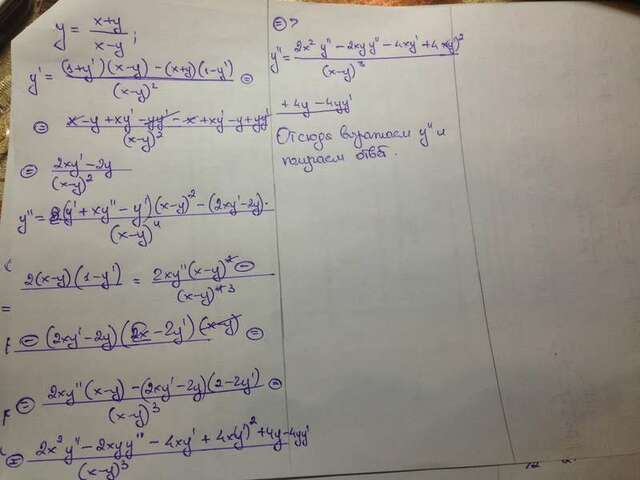 y = x+y / x-y ;
y' = (1+y')(x-y) - (x+y)(1-y') / (x-y)² ⊜
⊜ x-y+xy'-yy'-x+xy'-y+yy' / (x-y)²
= 2xy'-2y / (x-y)²
y'' = 2(y'+xy''-y')(x-y)² - (2xy'-2y)· / (x-y)⁴
2(x-y)(1-y') = 2xy''(x-y)² ⊖ / (x-y)⁴ ³
⊖ (2xy'-2y)(2x-2y')(x-y) ⊜
⊜ 2xy''(x-y)-(2xy'-2y)(2-2y') ⊜ / (x-y)³
⊜ 2x²y''-2xyy''-4xy'+4x(y')²+4y-4yy' / (x-y)³
⊜ ?
y'' = 2x²y''-2xyy''-4xy'+4xy')² / (x-y)³
+4y-4yy'
Отсюда выражаем y'' и
получаем ответ.